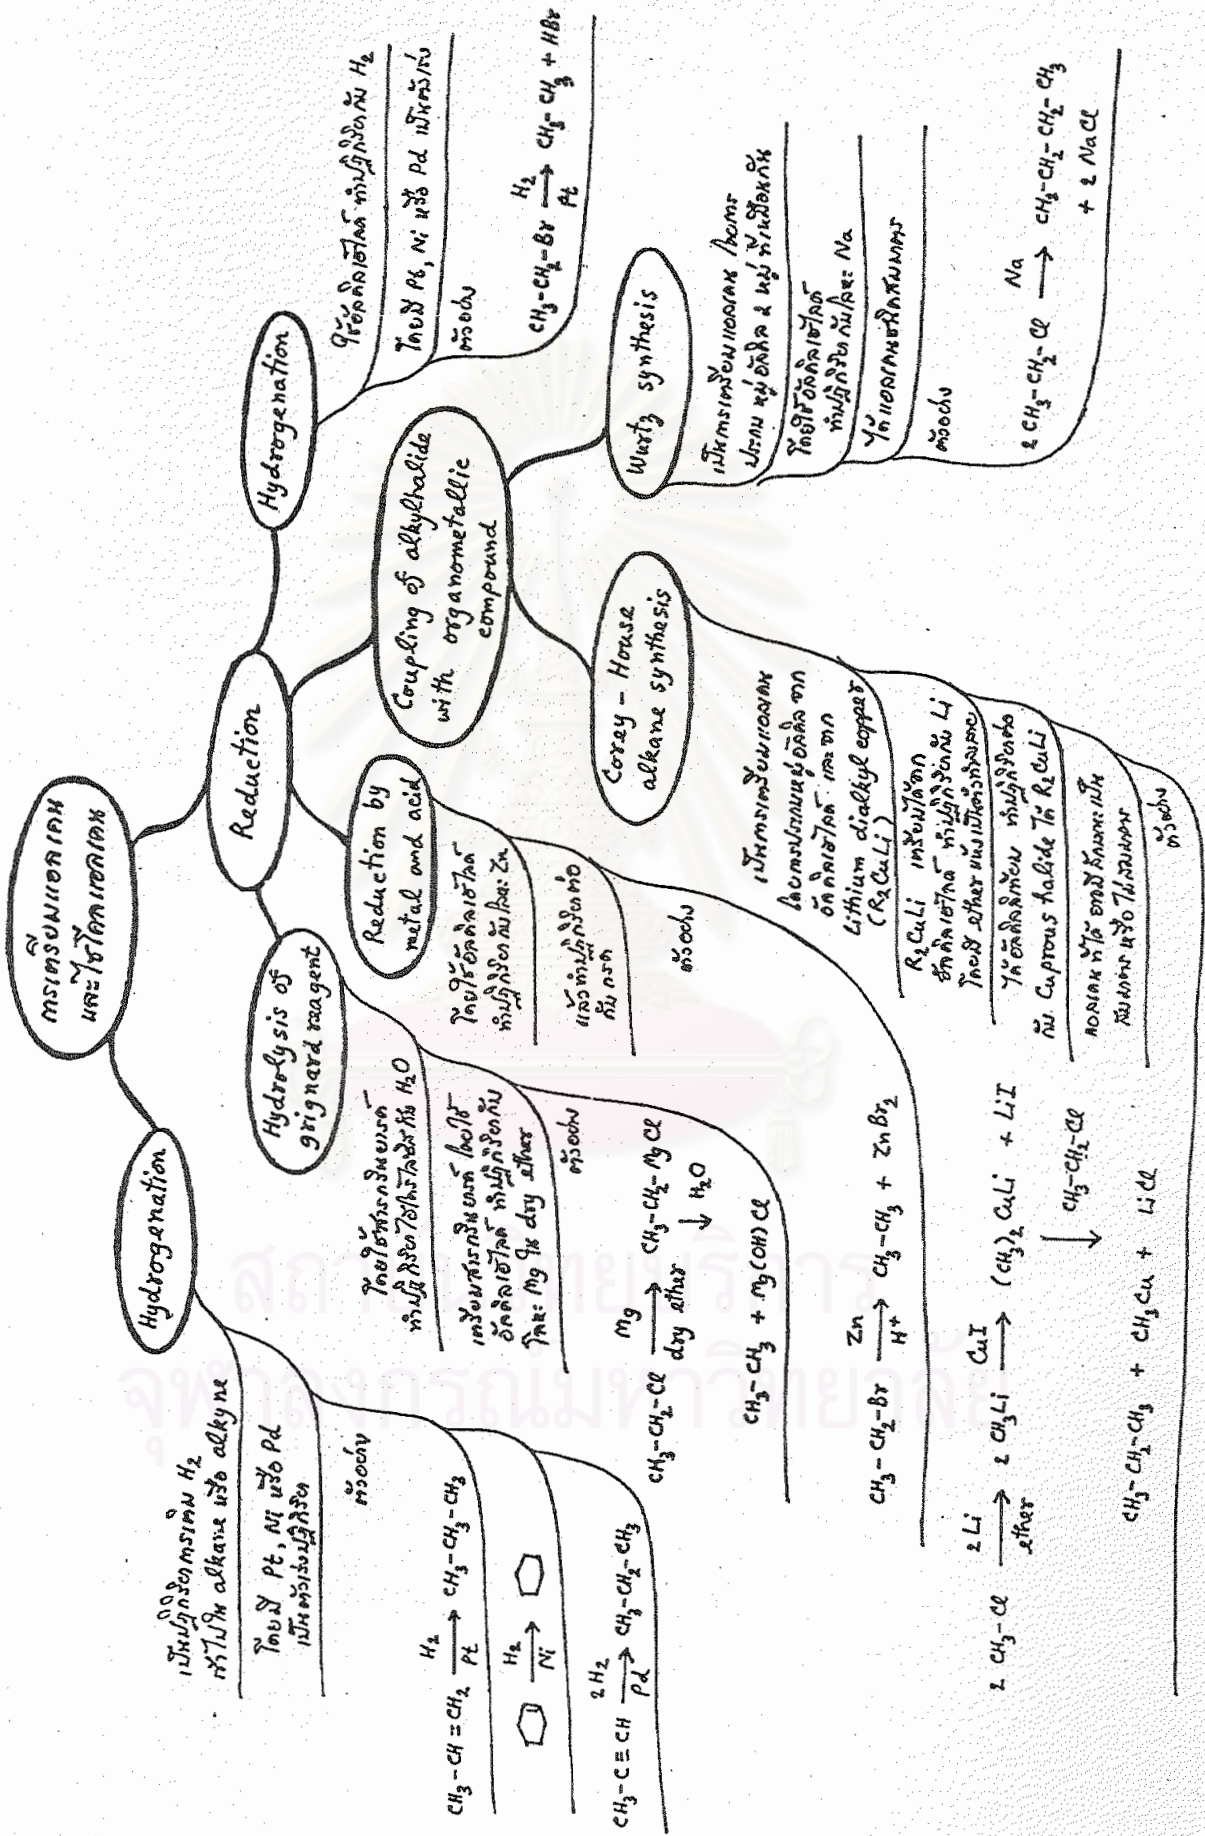 การเตรียมแอลเคน
และไซโคลแอลเคน
Hydrogenation
เป็นปฏิกิริยาการเติม H2
เข้าไปใน alkane หรือ alkyne
โดยมี Pt, Ni หรือ Pd
เป็นตัวเร่งปฏิกิริยา
ตัวอย่าง
CH3-CH=CH2 H2/Pt → CH3-CH3-CH3
H2/Ni →
CH3-C≡CH 2H2/Pd → CH3-CH2-CH3
Reduction
Hydrolysis of
grignard reagent
โดยใช้สารกรินยาร์ด
ทำปฏิกิริยาไฮโดรไลซิสกับ H2O
เตรียมสารกรินยาร์ด โดยใช้
อัลคิลเฮไลด์ ทำปฏิกิริยากับ
โลหะ Mg ใน dry ether
ตัวอย่าง
CH3-CH2-Cl Mg/dry ether → CH3-CH2-MgCl
↓ H2O
CH3-CH3 + Mg(OH)Cl
Reduction by
metal and acid
โดยใช้อัลคิลเฮไลด์
ทำปฏิกิริยากับโลหะ Zn
แล้วทำปฏิกิริยาต่อ
กับ กรด
ตัวอย่าง
CH3-CH2-Br Zn/H+ → CH3-CH3 + ZnBr2
Coupling of alkylhalide
with organometallic
compound
Corey-House
alkane synthesis
เป็นการเตรียมแอลเคน
โดยการประกบหมู่อัลคิลจาก
อัลคิลเฮไลด์ และจาก
Lithium dialkyl copper
(R2CuLi)
R2CuLi เตรียมได้จาก
อัลคิลเฮไลด์ ทำปฏิกิริยากับ Li
โดยมี ether แห้งเป็นตัวทำละลาย
ได้อัลคิลลิเทียม ทำปฏิกิริยาต่อ
กับ Cuprous halide ได้ R2CuLi
แอลเคนที่ได้ อาจมีลักษณะเป็น
สมมาตร หรือ ไม่สมมาตร
ตัวอย่าง
2 CH3-Cl 2Li/ether → 2 CH3Li CuI → (CH3)2CuLi + LiI
↓ CH3-CH2-Cl
CH3-CH2-CH3 + CH3Cu + LiCl
Wurtz synthesis
เป็นการเตรียมแอลเคน โดยการ
ประกบ หมู่อัลคิล 2 หมู่ ที่เหมือนกัน
โดยใช้อัลคิลเฮไลด์
ทำปฏิกิริยากับโลหะ Na
ได้แอลเคนชนิดสมมาตร
ตัวอย่าง
2 CH3-CH2-Cl Na → CH3-CH2-CH2-CH3
+ 2 NaCl
Hydrogenation
ใช้อัลคิลเฮไลด์ ทำปฏิกิริยากับ H2
โดยมี Pt, Ni หรือ Pd เป็นตัวเร่ง
ตัวอย่าง
CH3-CH2-Br H2/Pt → CH3-CH3 + HBr
สถาบันวิทยบริการ
จุฬาลงกรณ์มหาวิทยาลัย